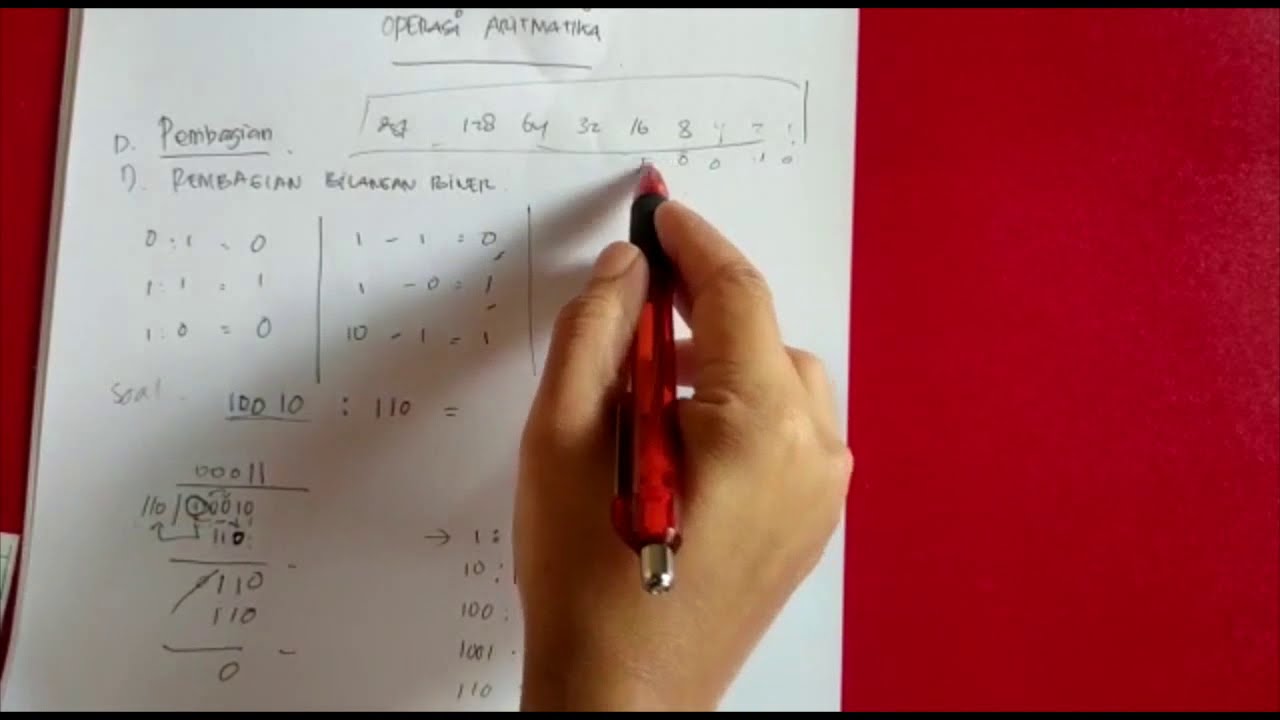 OPERASI ARITMATIKA
128 64 32 16 8 4 2 1
0 0 1 0
D. Pembagian
1). PEMBAGIAN BILANGAN BINER.
0 : 1 = 0
1 : 1 = 1
1 : 0 = 0
1 - 1 = 0
1 - 0 = 1
10 - 1 = 1
Soal.
10010 : 110 =
00011
110 / 10010
110
110
110
0
→ 1 :
10 :
100 :
1001
110